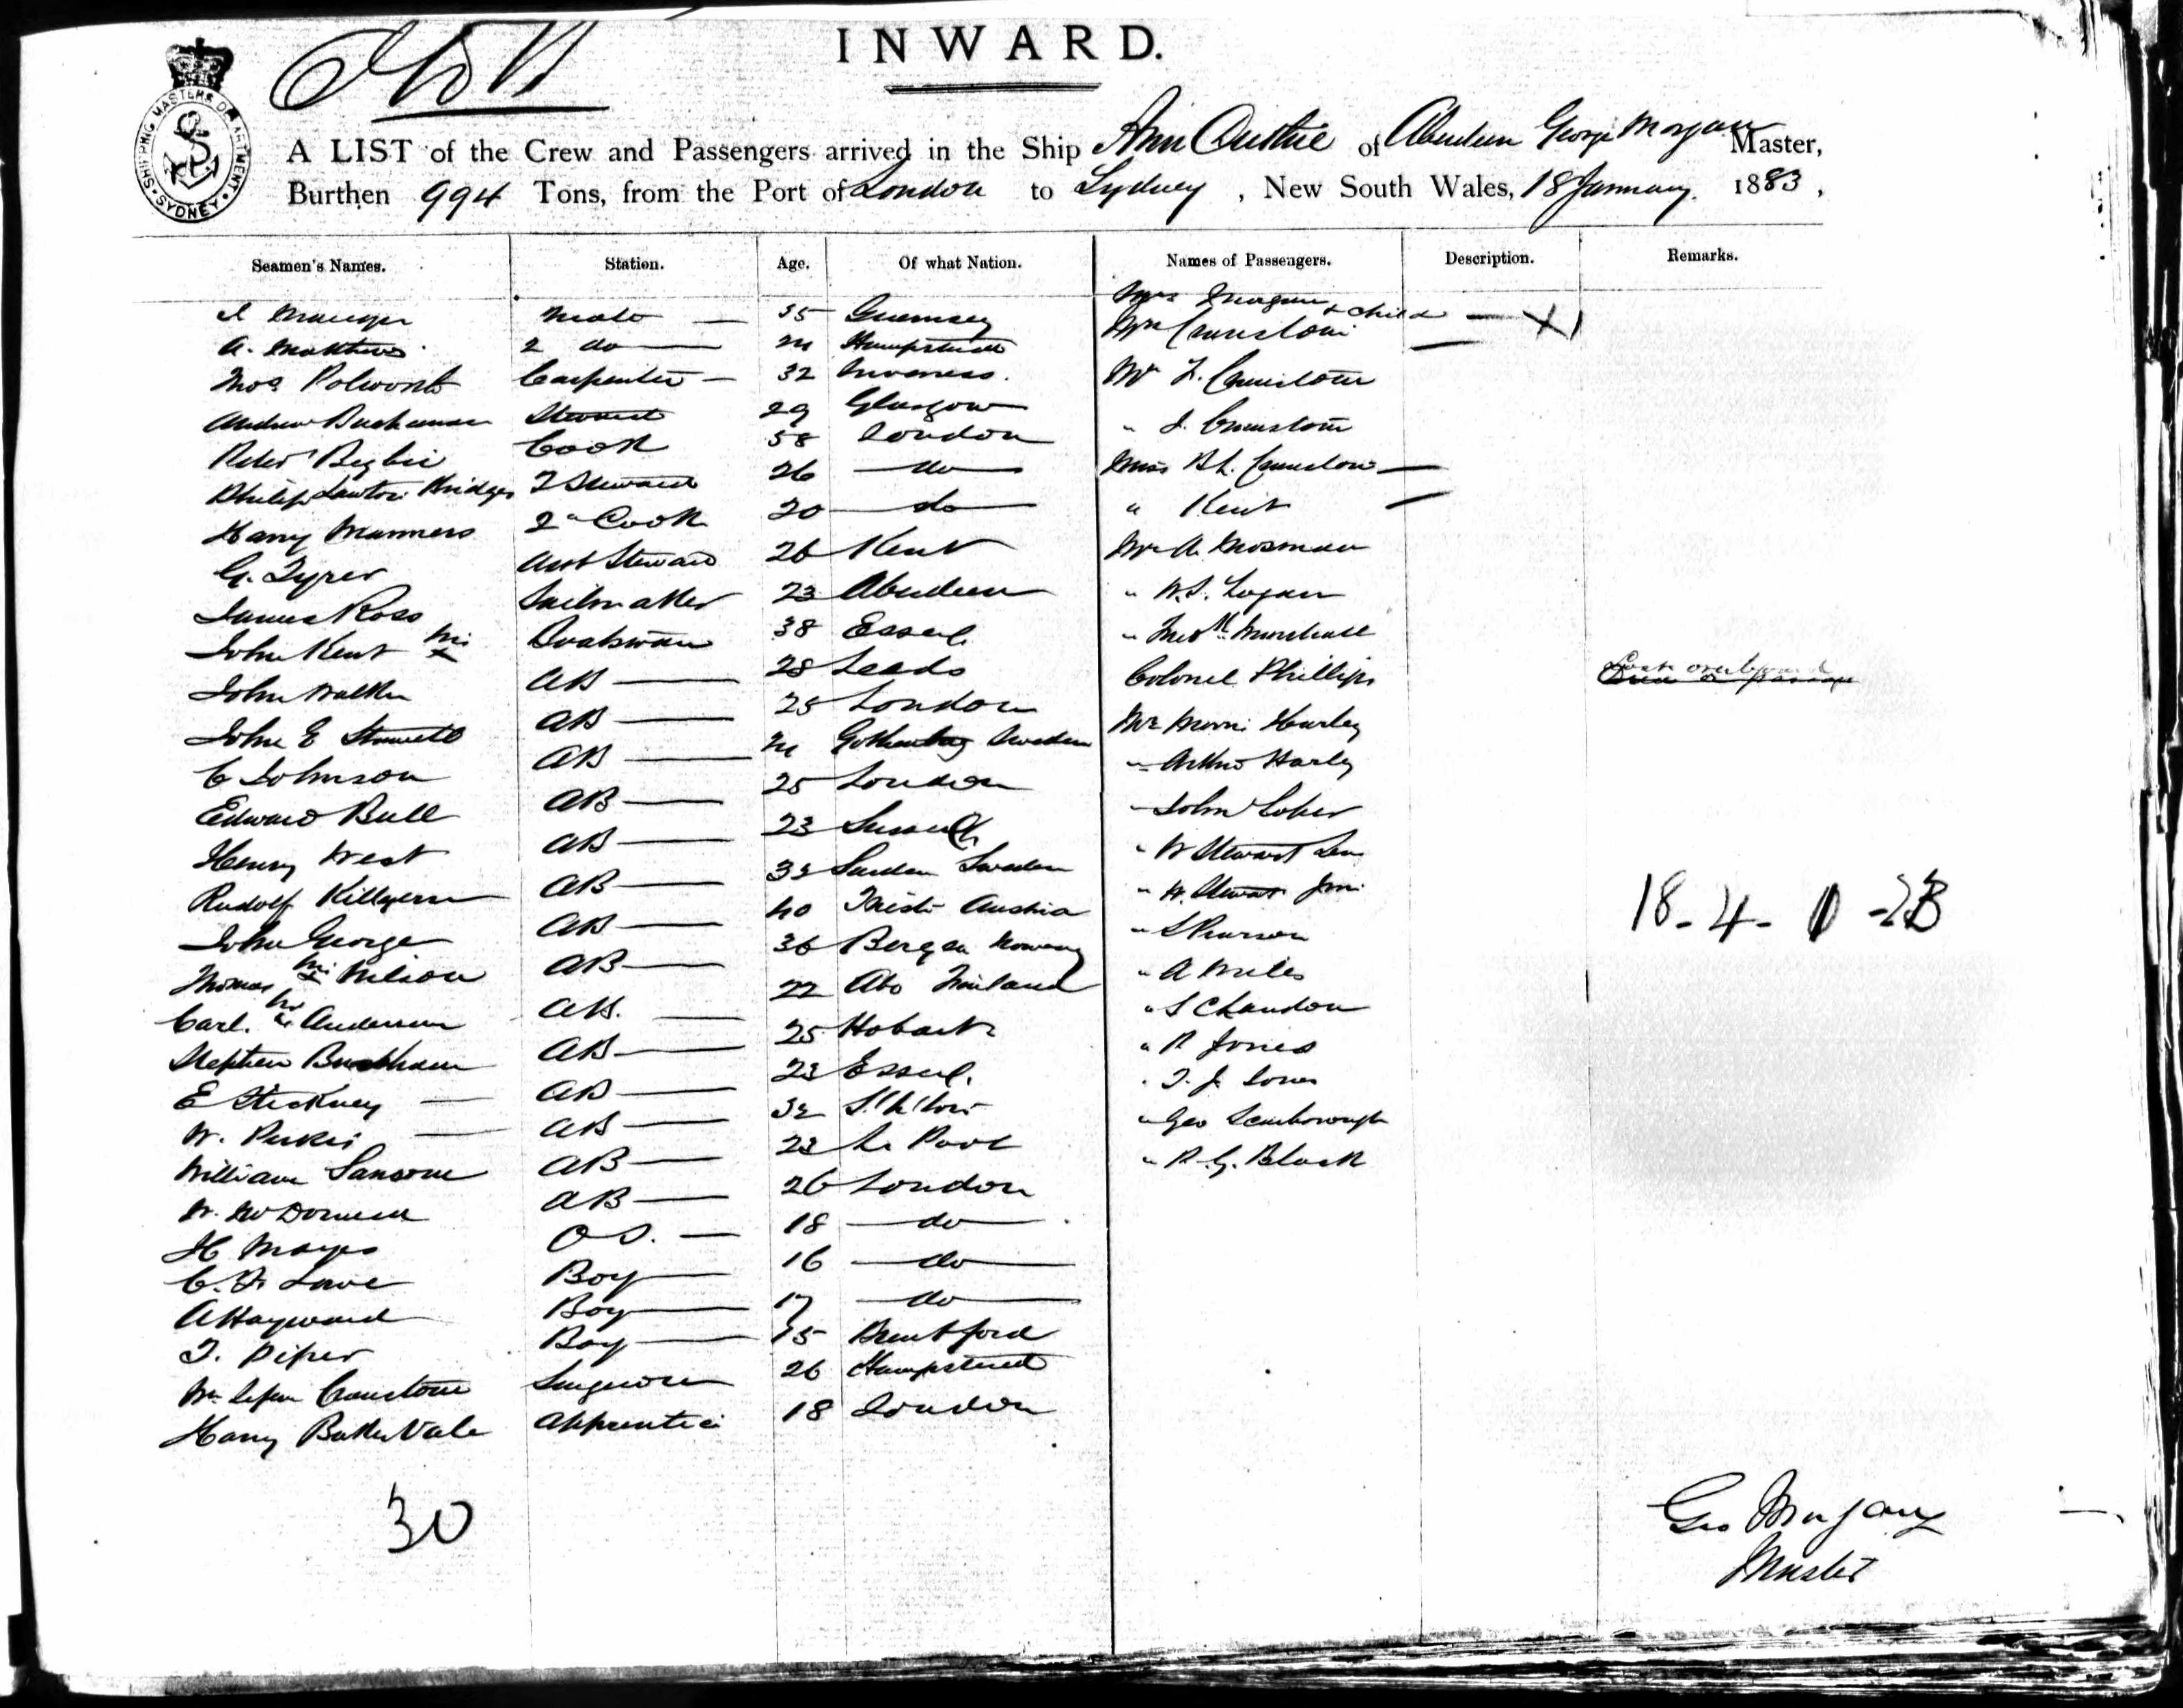 INWARD.
SHIPPING MASTERS DEPARTMENT
SYDNEY
A LIST of the Crew and Passengers arrived in the Ship Ann Duthie of Aberdeen George Morgan Master,
Burthen 994 Tons, from the Port of London to Sydney, New South Wales, 18 January. 1883,
Seamen's Names. Station. Age. Of what Nation. Names of Passengers. Description. Remarks.
Mrs Morgan & child
Mate 35 Guernsey Mrs Cranstone
A. Matthews 2 do 24 Hampstead
Thos Polworth Carpenter 32 Inverness. Mr F. Cranstone
Andrew Buchanan Steward 29 Glasgow " J. Cranstone
Peter Begbie Cook 58 London
Philip Lawton Bridges 2 Steward 26 do Miss B L. Cranstone
Harry Manners 2d Cook 20 do " Kent
G. Tyrer Asst Steward 26 Kent Mr A. Mosman
James Ross Sailmaker 23 Aberdeen " W.S. Logan
John Kent Boatswain 38 Essex " Marshall
John Walker AB 28 Leeds Colonel Phillips Lost overboard
John E AB 25 London Mr Harley
C Johnson AB 24 Gothenburg Sweden " Arthur Harley
Edward Bull AB 25 London " John
Henry West AB 23 Sussex " W Stewart Sen
Rudolf AB Sweden " W. Stewart Jnr
John George AB 40 Trieste Austria " S Pearson
Thomas Nilson AB 36 Bergen Norway " A Miles
Carl. Anderson AB. 22 Abo Finland " S Chandon
Stephen AB 25 Hobart " R Jones
E Stickney AB 23 Essex " T. J. Jones
W. Perkis AB 32 " Geo Scarborough
William Sansome AB 23 L. Pool " R. G. Black
W. McDonnell AB 26 London
H Mayes O S. 18 do
C. F. Lowe Boy 16 do
A Hayward Boy 17 do
T. Piper Boy 15 Brentford
Wm Cranstone Surgeon 26 Hampstead
Harry Baker Vale Apprentice 18 London
18-4-
30
Geo Morgan
Master